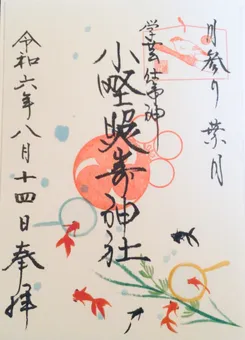 月参り 葉月
学芸 仕事の神
小野照崎神社
令和六年八月十四日 奉拝